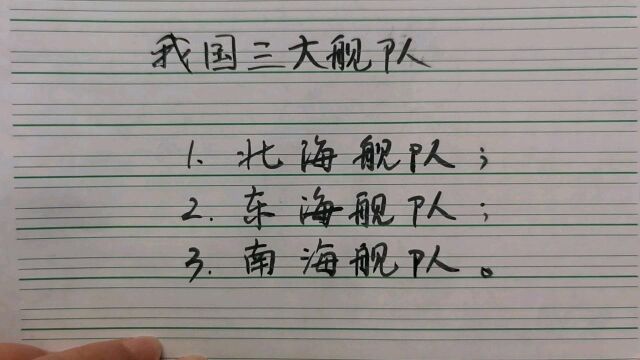 我国三大舰队
1. 北海舰队；
2. 东海舰队；
3. 南海舰队。